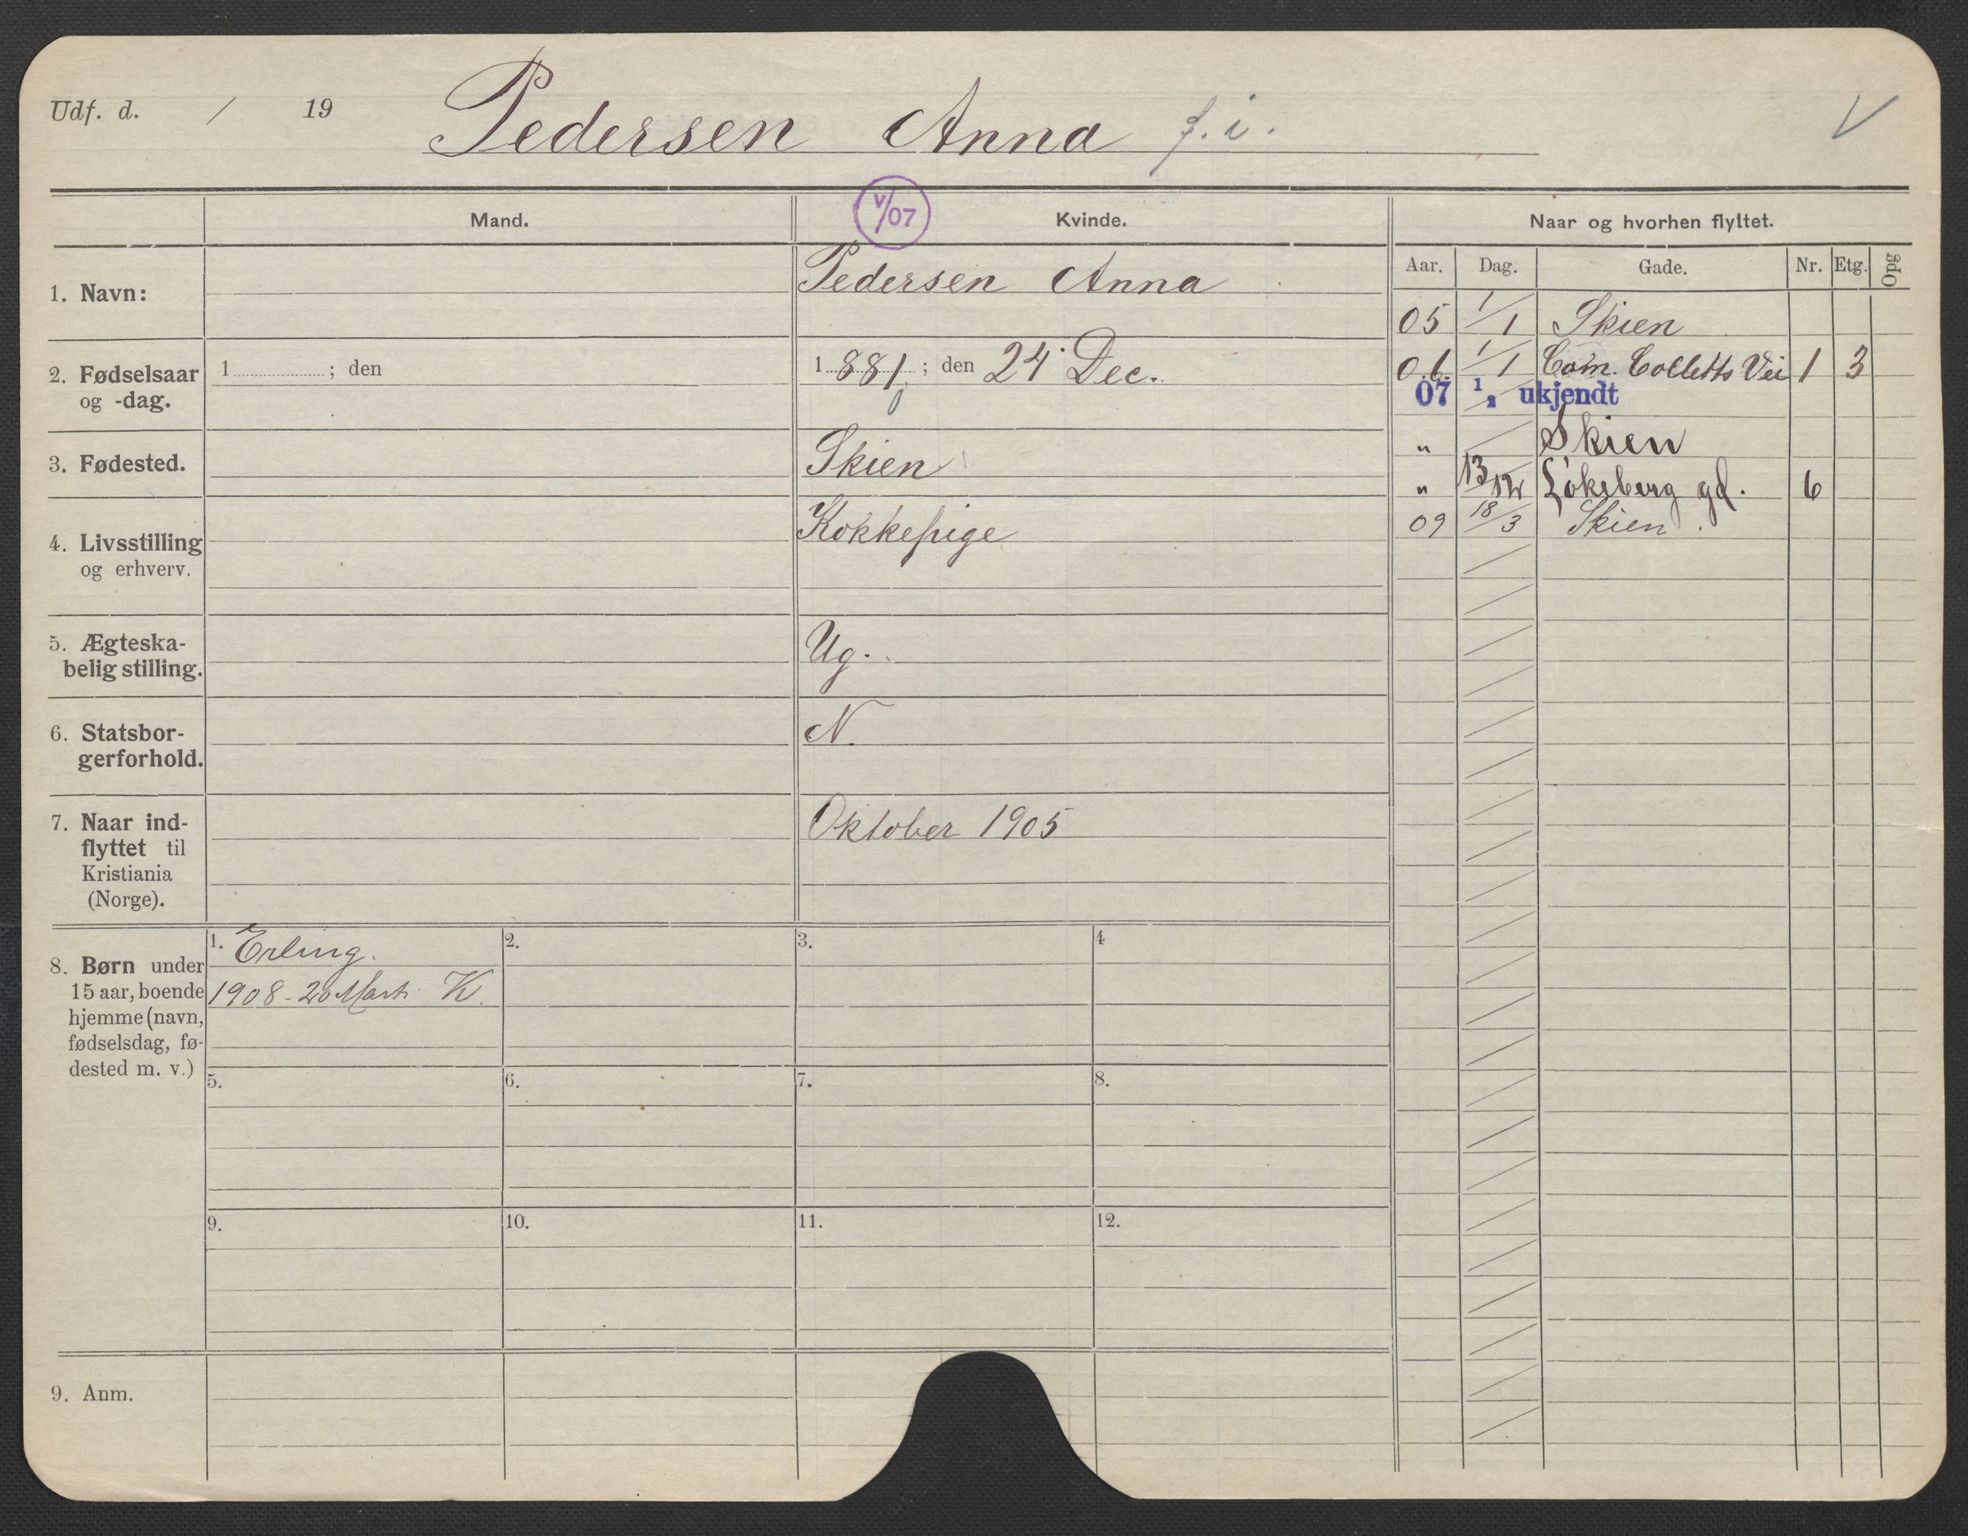 Udf. d. / 19 Pedersen Anna f. i. V
Mand. V/07 Kvinde. Naar og hvorhen flyttet.
Aar. Dag. Gade. Nr. Etg. Opg
1. Navn: Pedersen Anna
05 1/1 Skien
2. Fødselsaar og -dag. 1 ; den
1 881 ; den 24 Dec.
06 1/1 Cam. Colletts Vei 1 3
07 1/2 ukjendt
" / Skien
3. Fødested. Skien
" 13/12 Løkeberg gd. 6
09 18/3 Skien.
4. Livsstilling
og erhverv.
Kokkepige
5. Ægteska-
belig stilling.
Ug.
6. Statsbor-
gerforhold.
N.
7. Naar ind-
flyttet til
Kristiania
(Norge).
Oktober 1905
8. Børn under
15 aar, boende
hjemme (navn,
fødselsdag, fø-
dested m. v.)
1. Erling.
1908 - 20 Marts K.
2.
3.
4
5.
6.
7.
8.
9.
10.
11.
12.
9. Anm.